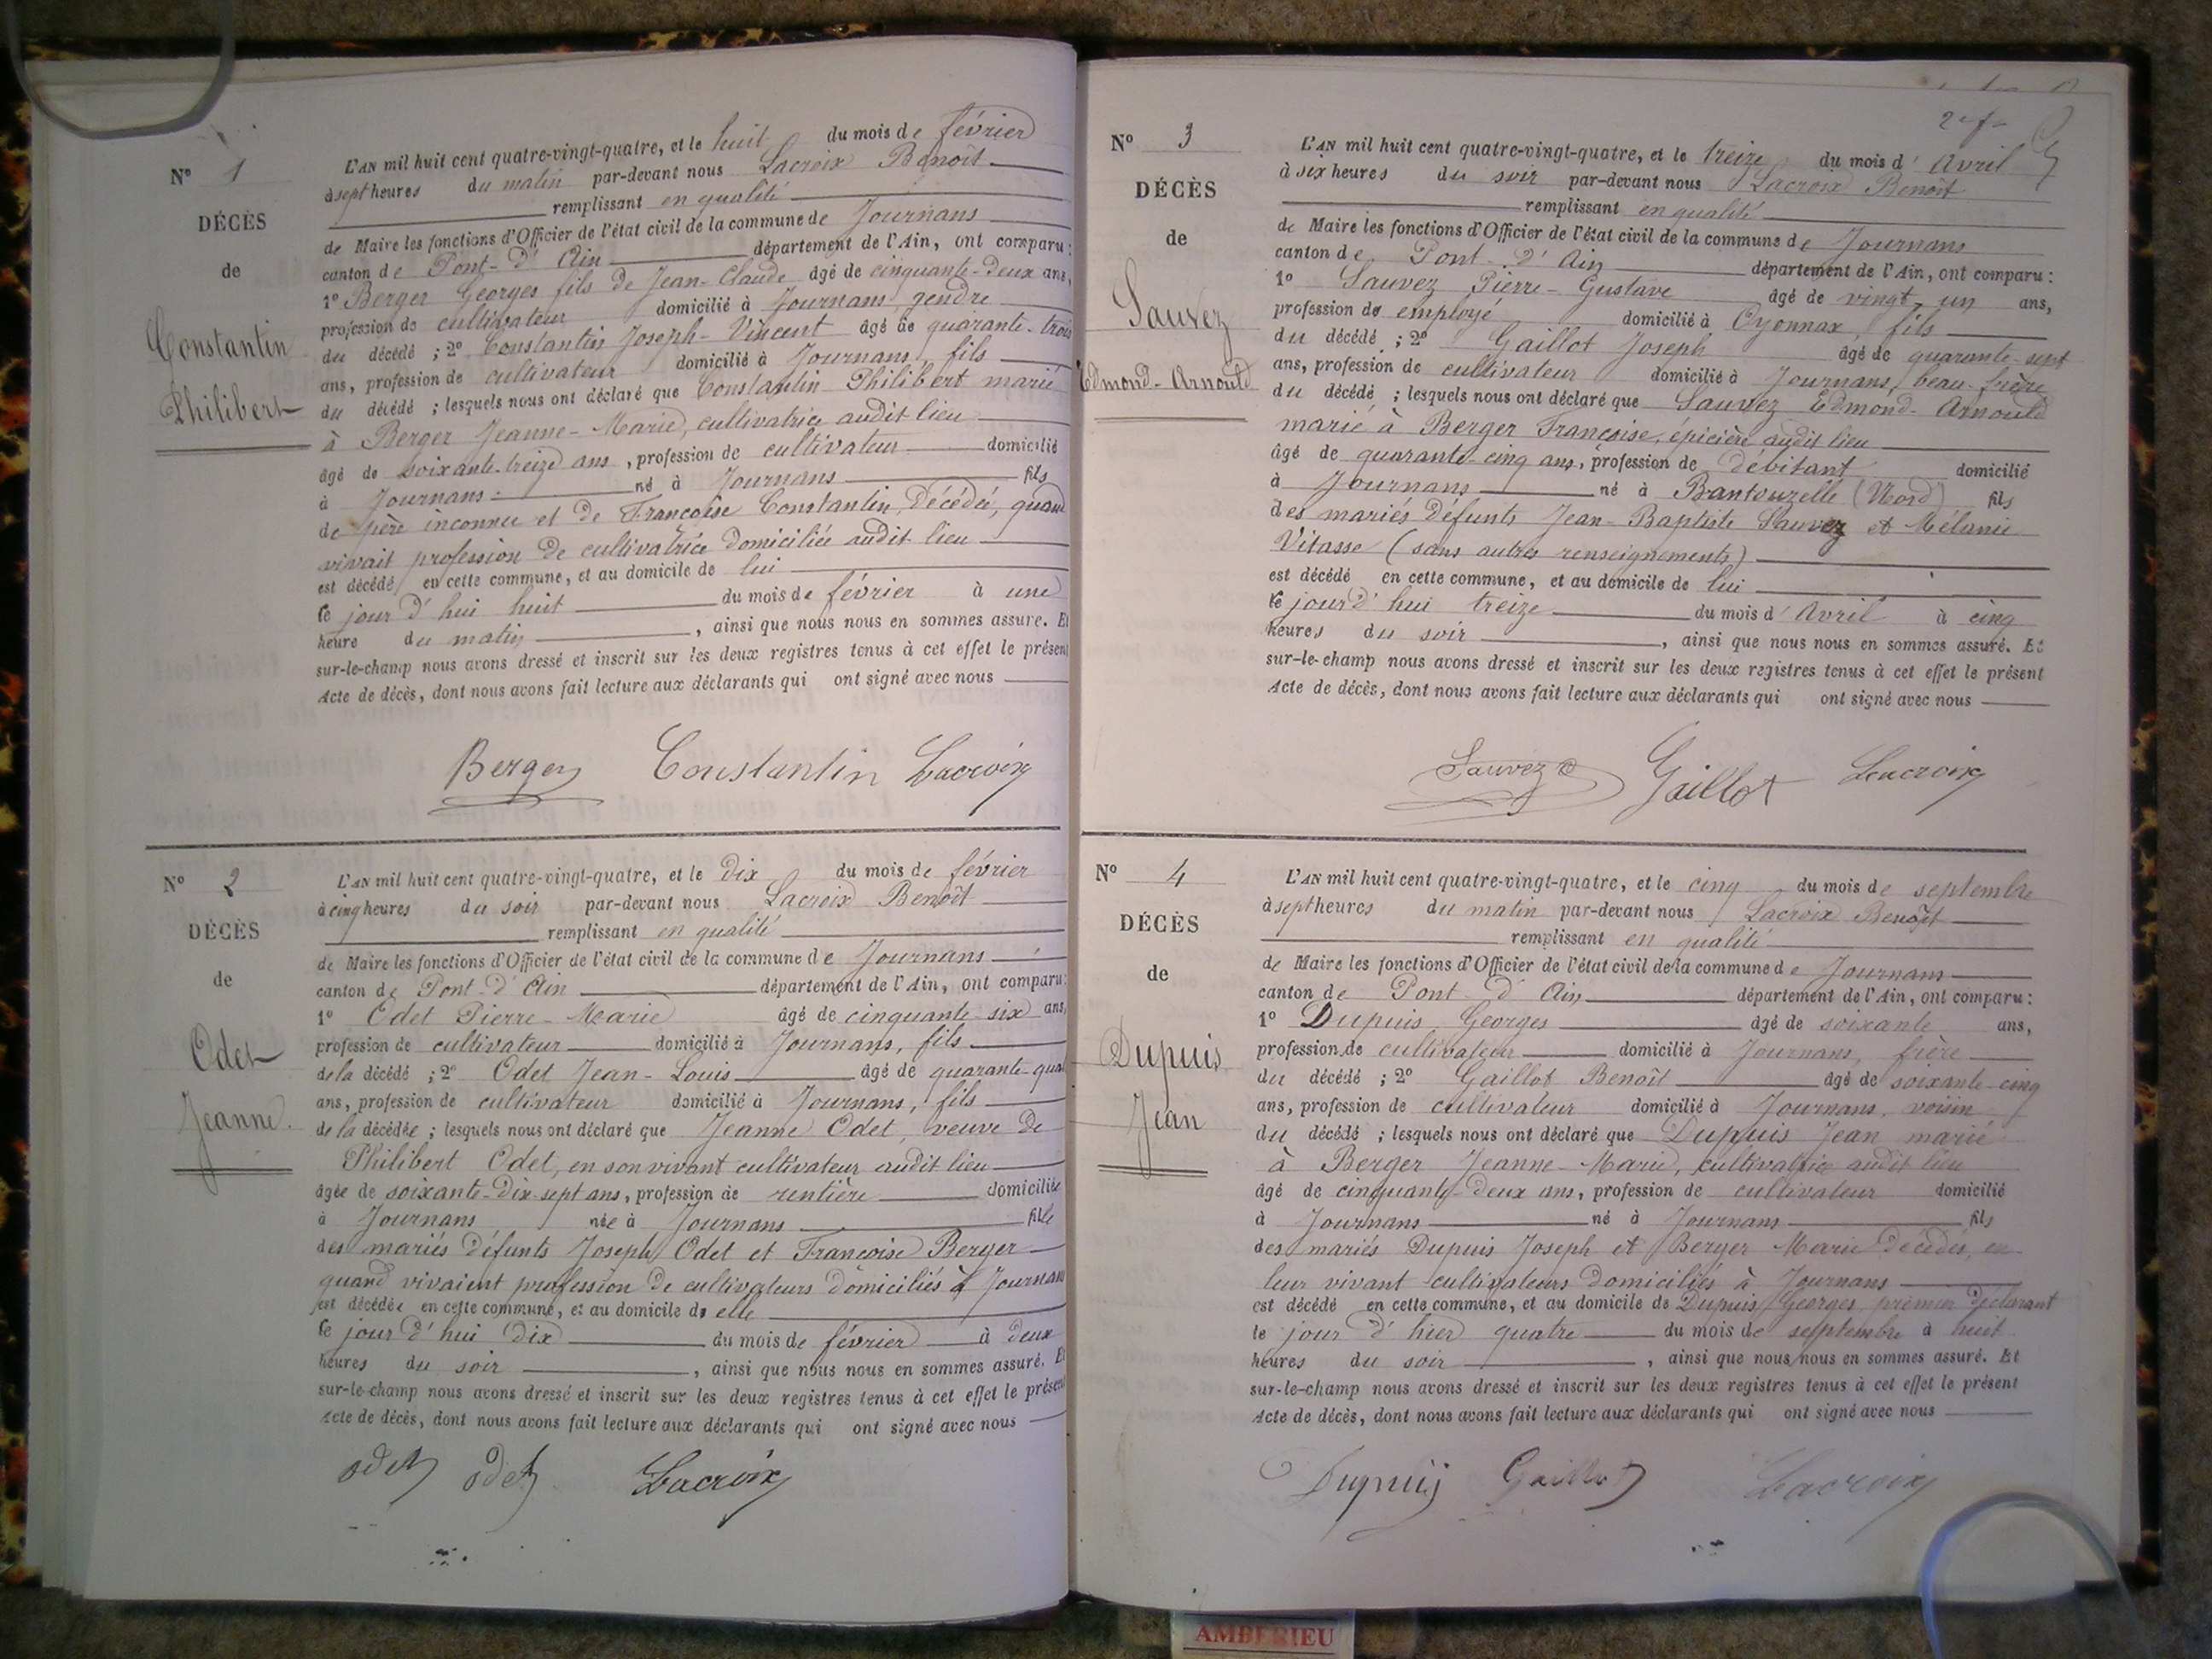 N° 1
DÉCÈS
de
Constantin
Philibert
L'AN mil huit cent quatre-vingt-quatre, et le huit du mois de février
à sept heures du matin par-devant nous Lacroix Benoît
remplissant en qualité
de Maire les fonctions d'Officier de l'état civil de la commune de Journans
canton de Pont-d'Ain département de l'Ain, ont comparu :
1° Berger Georges fils de Jean-Claude âgé de cinquante-deux ans,
profession de cultivateur domicilié à Journans gendre
du décédé ; 2° Constantin Joseph-Vincent âgé de quarante-trois
ans, profession de cultivateur domicilié à Journans, fils
du décédé ; lesquels nous ont déclaré que Constantin Philibert marié
à Berger Jeanne-Marie, cultivatrice audit lieu
âgé de soixante-treize ans, profession de cultivateur domicilié
à Journans né à Journans fils
de père inconnu et de Françoise Constantin, décédée, quand
vivait profession de cultivatrice domiciliée audit lieu
est décédé en cette commune, et au domicile de lui
le jour d'hui huit du mois de février à une
heure du matin, ainsi que nous nous en sommes assuré. Et
sur-le-champ nous avons dressé et inscrit sur les deux registres tenus à cet effet le présent
Acte de décès, dont nous avons fait lecture aux déclarants qui ont signé avec nous
Berger Constantin Lacroix
N° 2
DÉCÈS
de
Odet
Jeanne.
L'AN mil huit cent quatre-vingt-quatre, et le dix du mois de février
à cinq heures du soir par-devant nous Lacroix Benoît
remplissant en qualité
de Maire les fonctions d'Officier de l'état civil de la commune de Journans
canton de Pont-d'Ain département de l'Ain, ont comparu :
1° Odet Pierre-Marie âgé de cinquante-six ans,
profession de cultivateur domicilié à Journans, fils
de la décédé ; 2° Odet Jean-Louis âgé de quarante-qua
ans, profession de cultivateur domicilié à Journans, fils
de la décédée ; lesquels nous ont déclaré que Jeanne Odet, veuve de
Philibert Odet, en son vivant cultivateur audit lieu
âgée de soixante-dix-sept ans, profession de rentière domiciliée
à Journans née à Journans fille
des mariés défunts Joseph Odet et Françoise Berger
quand vivaient profession de cultivateurs domiciliés à Journans
est décédée en cette commune, et au domicile de elle
le jour d'hui dix du mois de février à deux
heures du soir, ainsi que nous nous en sommes assuré. Et
sur-le-champ nous avons dressé et inscrit sur les deux registres tenus à cet effet le présent
Acte de décès, dont nous avons fait lecture aux déclarants qui ont signé avec nous
odet odet Lacroix
2e f
N° 3
DÉCÈS
de
Sauvez
Edmond-Arnould
L'AN mil huit cent quatre-vingt-quatre, et le treize du mois d'Avril
à six heures du soir par-devant nous Lacroix Benoît
remplissant en qualité
de Maire les fonctions d'Officier de l'état civil de la commune de Journans
canton de Pont-d'Ain département de l'Ain, ont comparu :
1° Sauvez Pierre-Gustave âgé de vingt-un ans,
profession de employé domicilié à Oyonnax, fils
du décédé ; 2° Gaillot Joseph âgé de quarante-sept
ans, profession de cultivateur domicilié à Journans, beau-frère
du décédé ; lesquels nous ont déclaré que Sauvez Edmond-Arnould
marié à Berger Françoise, épicière audit lieu
âgé de quarante-cinq ans, profession de débitant domicilié
à Journans né à Bantouzelle (Nord) fils
des mariés défunts Jean-Baptiste Sauvez et Mélanie
Vitasse (sans autres renseignements)
est décédé en cette commune, et au domicile de lui
le jour d'hui treize du mois d'Avril à cinq
heures du soir, ainsi que nous nous en sommes assuré. Et
sur-le-champ nous avons dressé et inscrit sur les deux registres tenus à cet effet le présent
Acte de décès, dont nous avons fait lecture aux déclarants qui ont signé avec nous
Sauvez Gaillot Lacroix
N° 4
DÉCÈS
de
Dupuis
Jean
L'AN mil huit cent quatre-vingt-quatre, et le cinq du mois de septembre
à sept heures du matin par-devant nous Lacroix Benoît
remplissant en qualité
de Maire les fonctions d'Officier de l'état civil de la commune de Journans
canton de Pont-d'Ain département de l'Ain, ont comparu :
1° Dupuis Georges âgé de soixante ans,
profession de cultivateur domicilié à Journans, frère
du décédé ; 2° Gaillot Benoît âgé de soixante-cinq
ans, profession de cultivateur domicilié à Journans, voisin
du décédé ; lesquels nous ont déclaré que Dupuis Jean marié
à Berger Jeanne-Marie, cultivatrice audit lieu
âgé de cinquante-deux ans, profession de cultivateur domicilié
à Journans né à Journans fils
des mariés Dupuis Joseph et Berger Marie décédés, en
leur vivant cultivateurs domiciliés à Journans
est décédé en cette commune, et au domicile de Dupuis Georges, premier déclarant
le jour d'hier quatre du mois de septembre à huit
heures du soir, ainsi que nous nous en sommes assuré. Et
sur-le-champ nous avons dressé et inscrit sur les deux registres tenus à cet effet le présent
Acte de décès, dont nous avons fait lecture aux déclarants qui ont signé avec nous
Dupuis Gaillot Lacroix
AMBERIEU